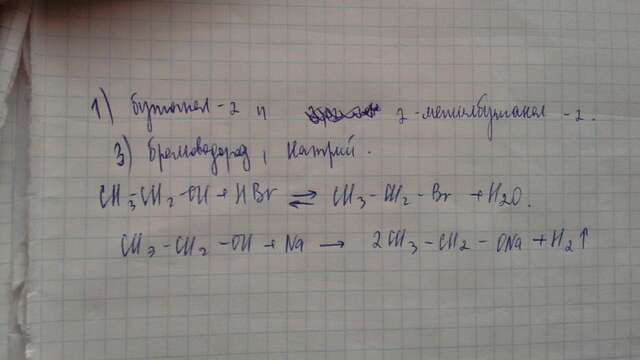 1) бутанол-2 и 2-метилбутанол-2.
3) Бромоводород, натрий.
CH3-CH2-OH + HBr ⇌ CH3-CH2-Br + H2O.
CH3-CH2-OH + Na → 2CH3-CH2-ONa + H2↑